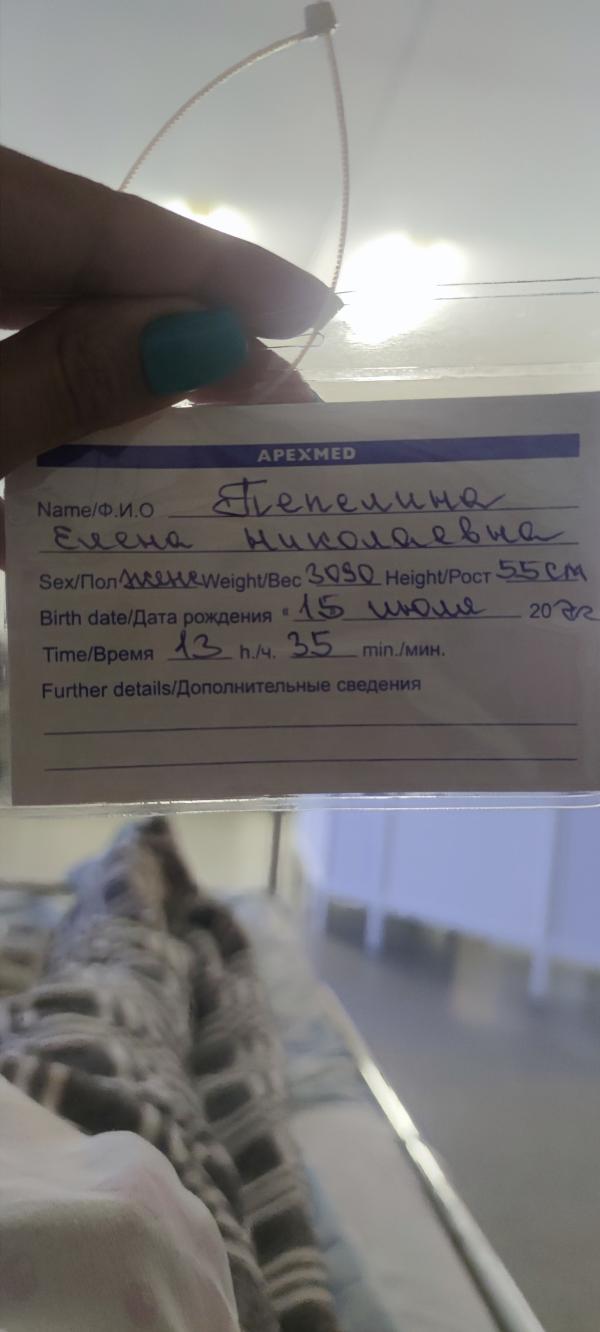 APEXMED
Name/Ф.И.О Пепелина
Елена Николаевна
Sex/Пол жен Weight/Вес 3090 Height/Рост 55 см
Birth date/Дата рождения " 15 июля 20
Time/Время 13 h./ч. 35 min./мин.
Further details/Дополнительные сведения